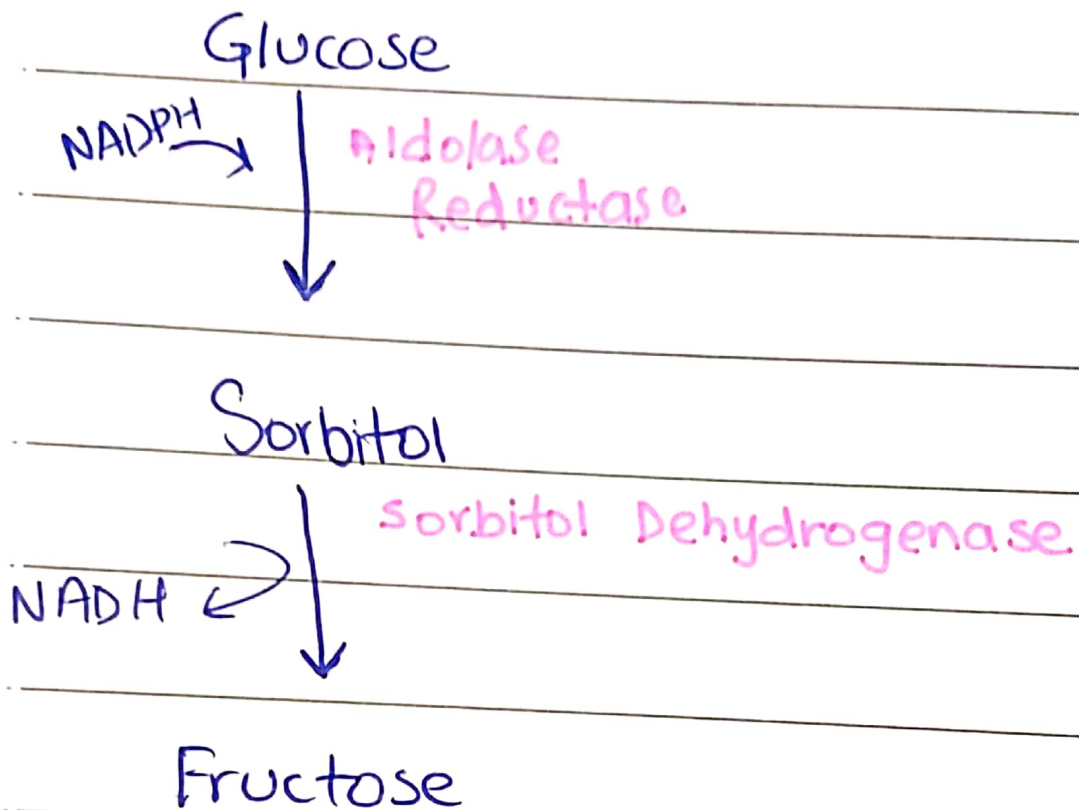 Glucose
NADPH
Aldolase
Reductase
Sorbitol
Sorbitol Dehydrogenase
NADH
Fructose